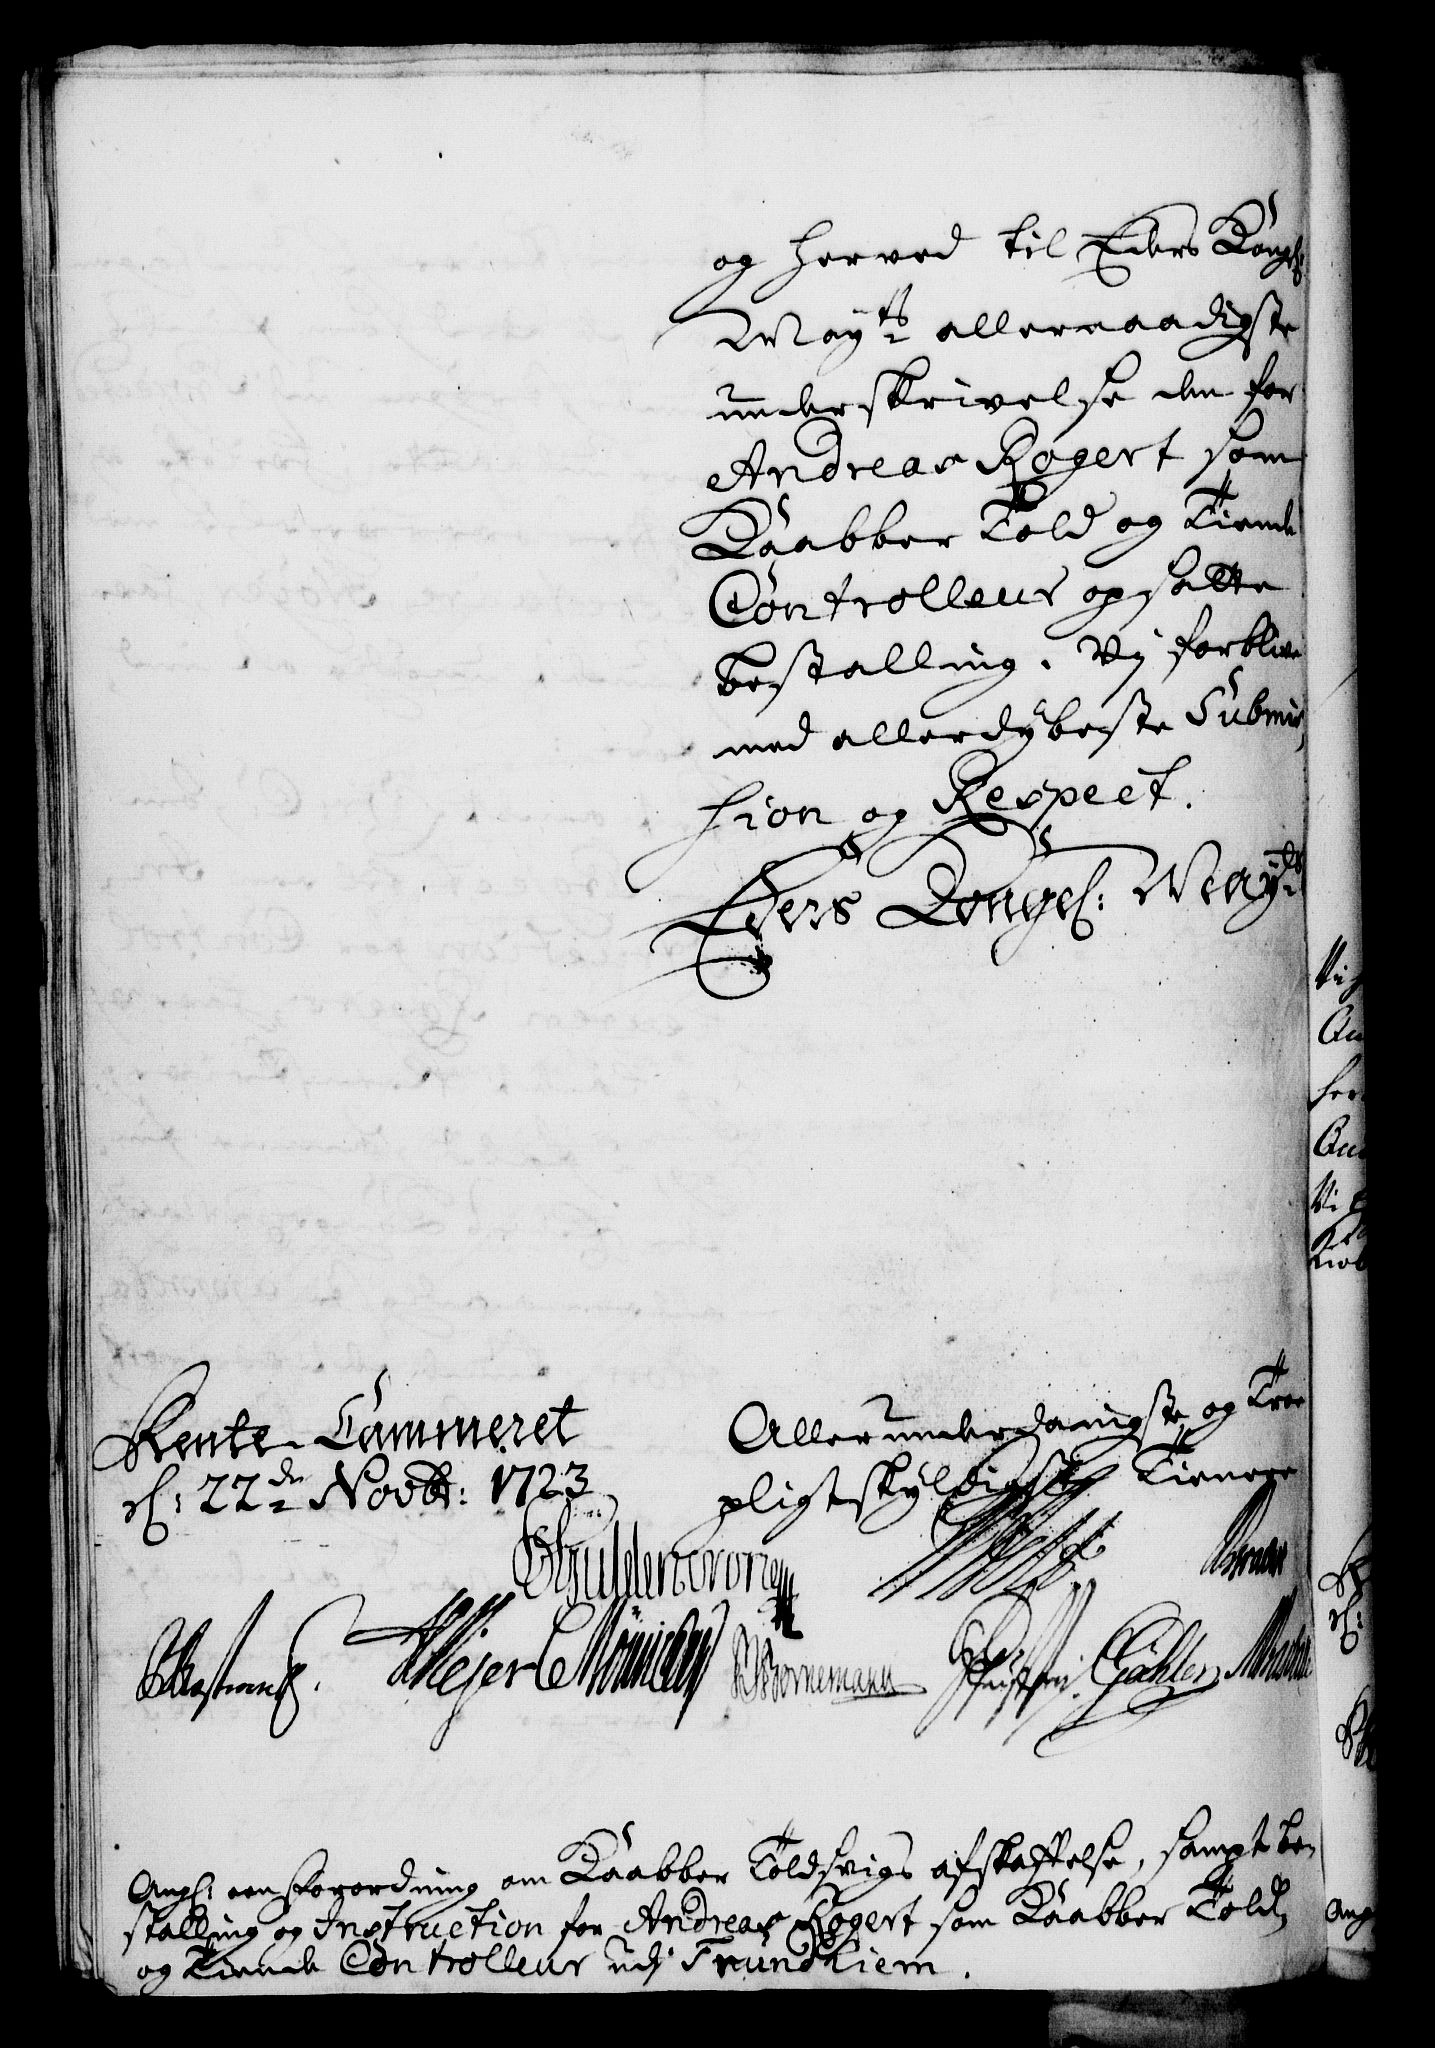 og herved til Eders Kongl:
May:ts allernaadigste
underskrivelse den for
Andreas Rogert som
Kaabber Told og Tiende
Controlleur opsatte
bestalling. Vj forblive
med allerdybeste Submis,
sion og Respect.
Eders Kongel: May:ts
Rente-Cammeret
d: 22de Novbr: 1723
Allerunderdanigste og Troe
pligtskyldigste Tienere
Guldencrone
Meyer
Bornemann
Gähler
Ang: een Forordning om Kaabber Toldsvigs afskaffelse, sampt be-
stalling og Instruction for Andreas Rogert som Kaabber Told,
og Tiende Controlleur udj Trundhiem.